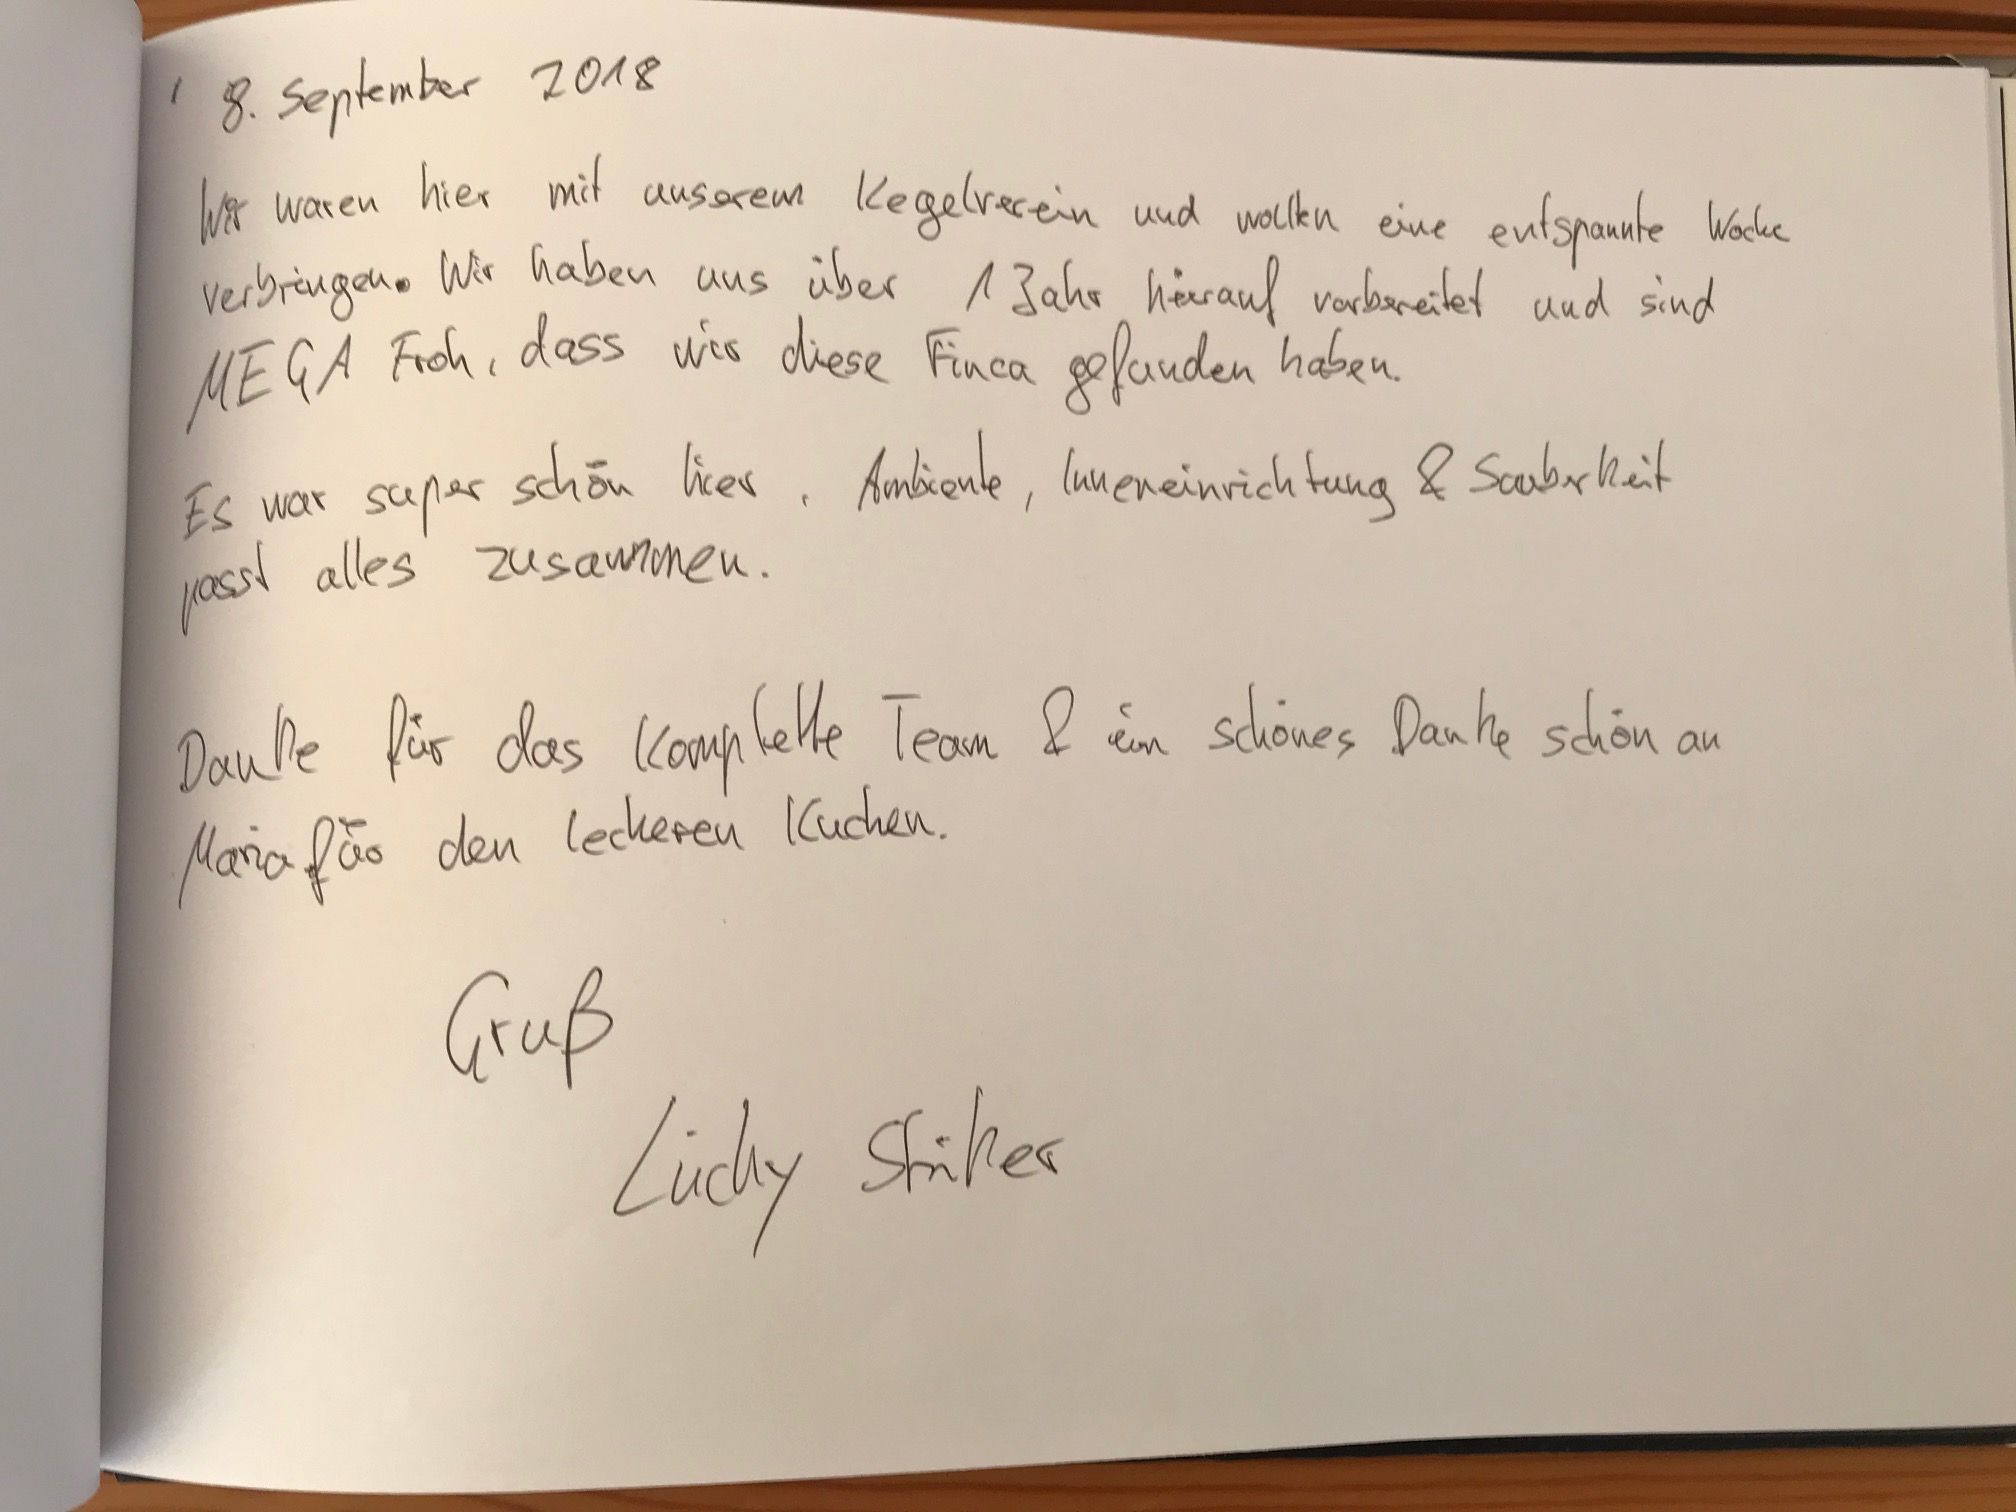 8. September 2018
Wir waren hier mit unserem Kegelverein und wollten eine entspannte Woche
verbringen. Wir haben uns über 1 Jahr hierauf vorbereitet und sind
MEGA Froh, dass wir diese Finca gefunden haben.
Es war super schön hier, Ambiente, Inneneinrichtung & Sauberkeit
passt alles zusammen.
Danke für das Komplette Team & ein schönes Danke schön an
Maria für den leckeren Kuchen.
Gruß
Lücky Striker